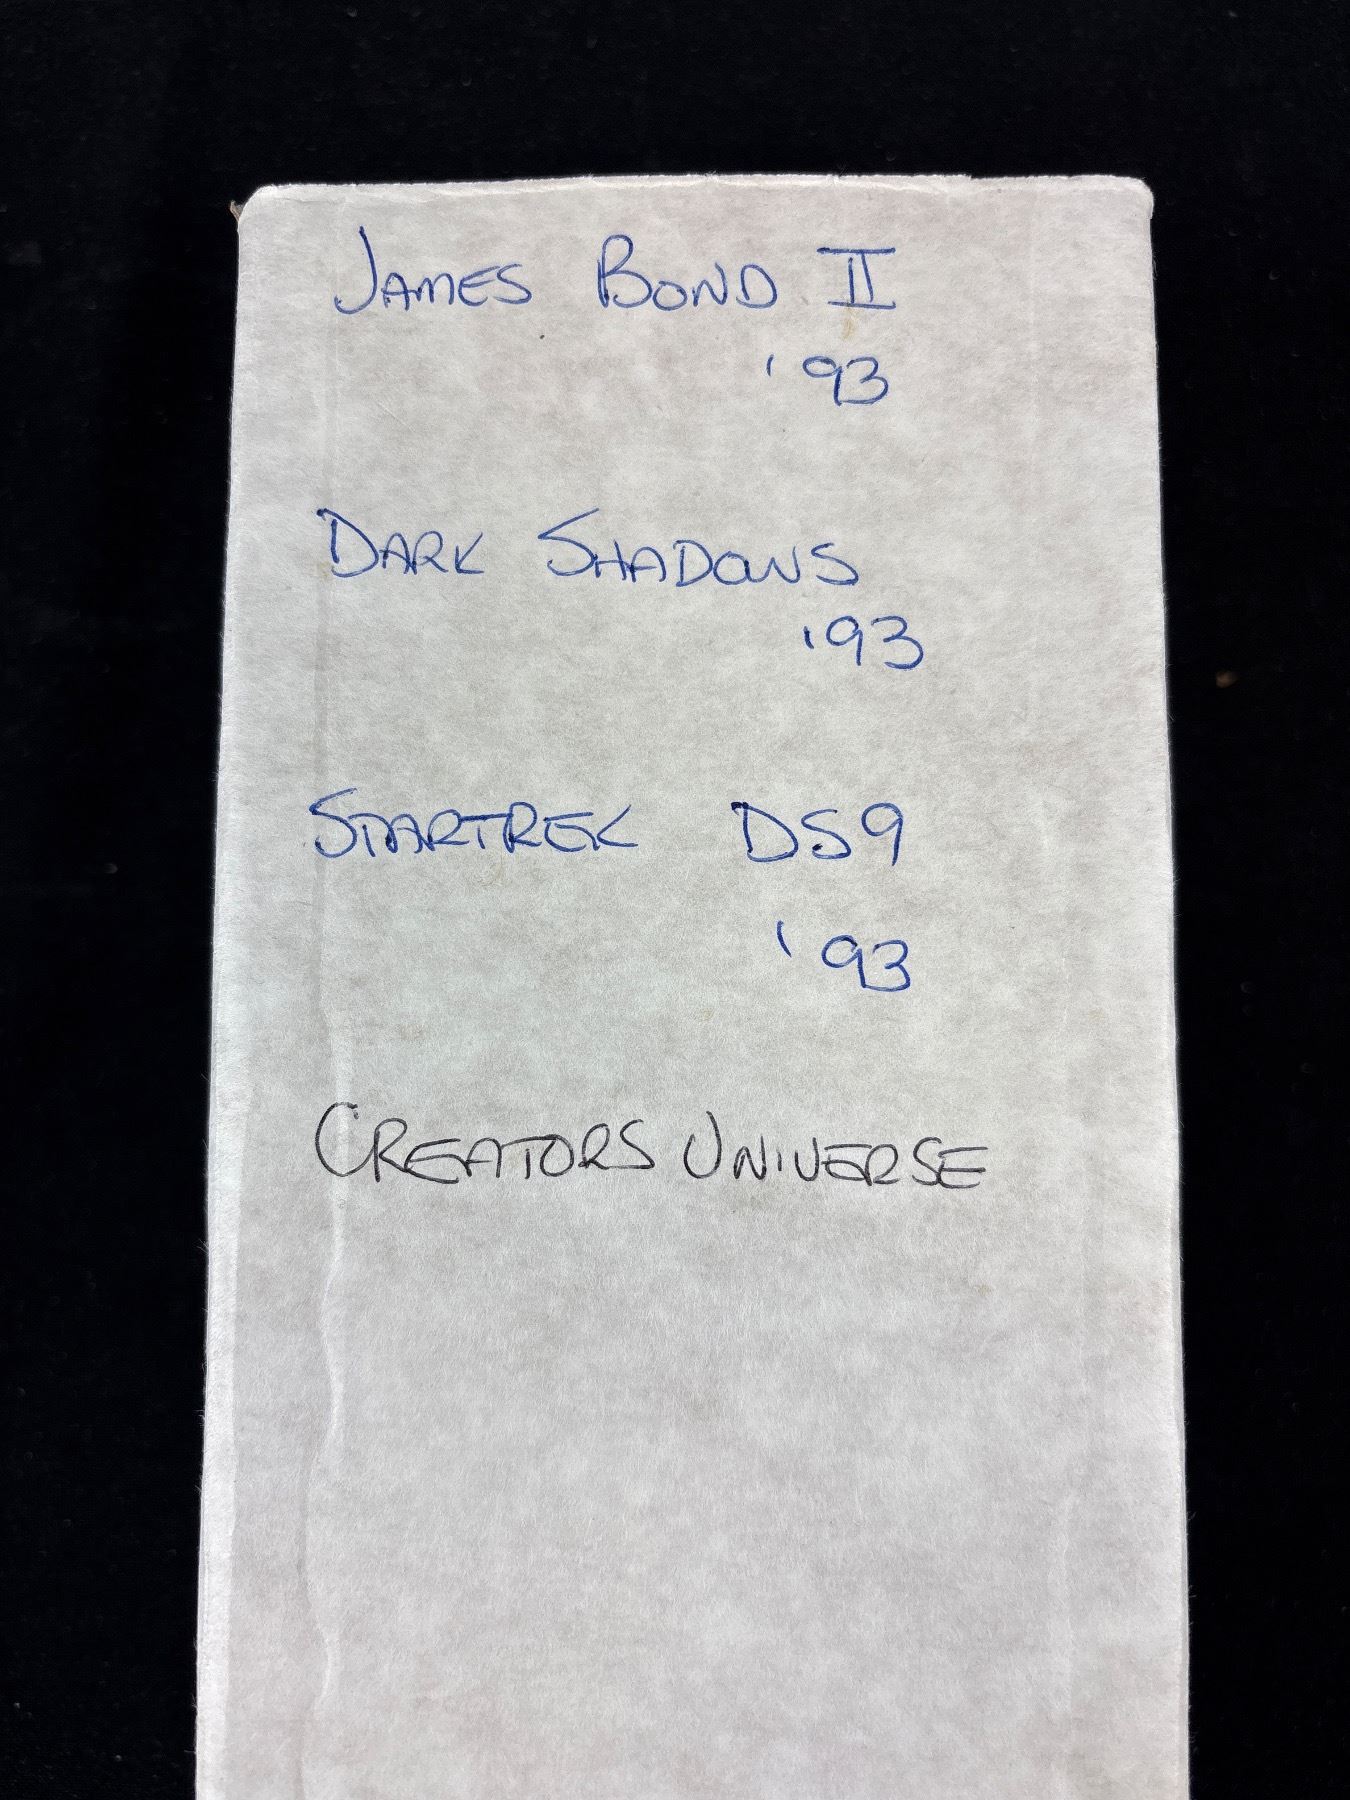 JAMES BOND II
'93
DARK SHADOWS
'93
STARTREK DS9
'93
CREATORS UNIVERSE